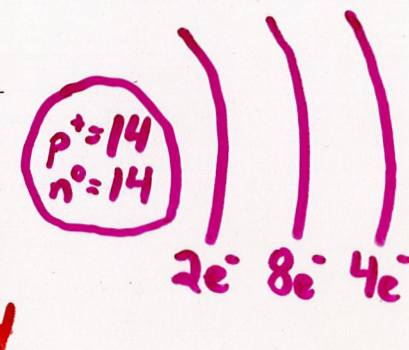 p⁺=14
n⁰=14
2e⁻ 8e⁻ 4e⁻